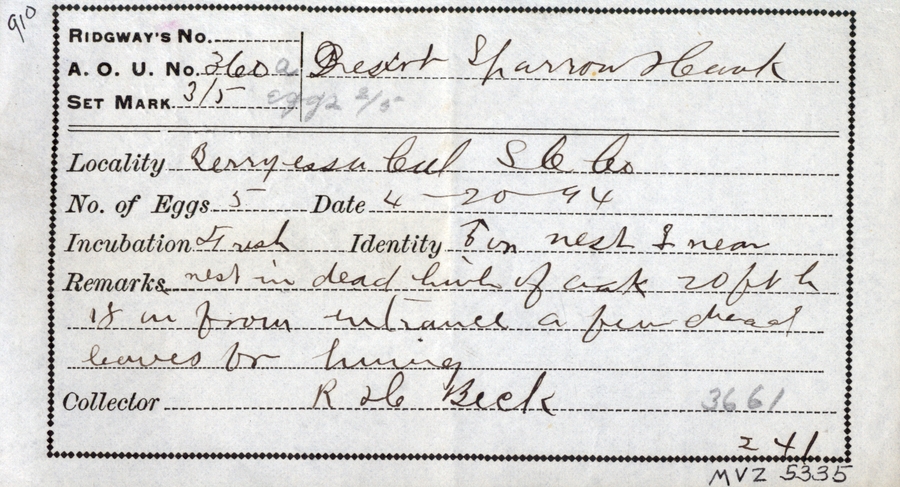 910
RIDGWAY'S No.
A. O. U. No. 360 a Desert Sparrow Hawk
SET MARK 3/5 eggs 2/5
Locality Berryessa Cal S C Co
No. of Eggs 5 Date 4-20-94
Incubation Fresh Identity on nest & near
Remarks nest in dead limb of oak 20 ft h
18 in from entrance a few dead
leaves for lining
Collector R H Beck 3661
241
MVZ 5335